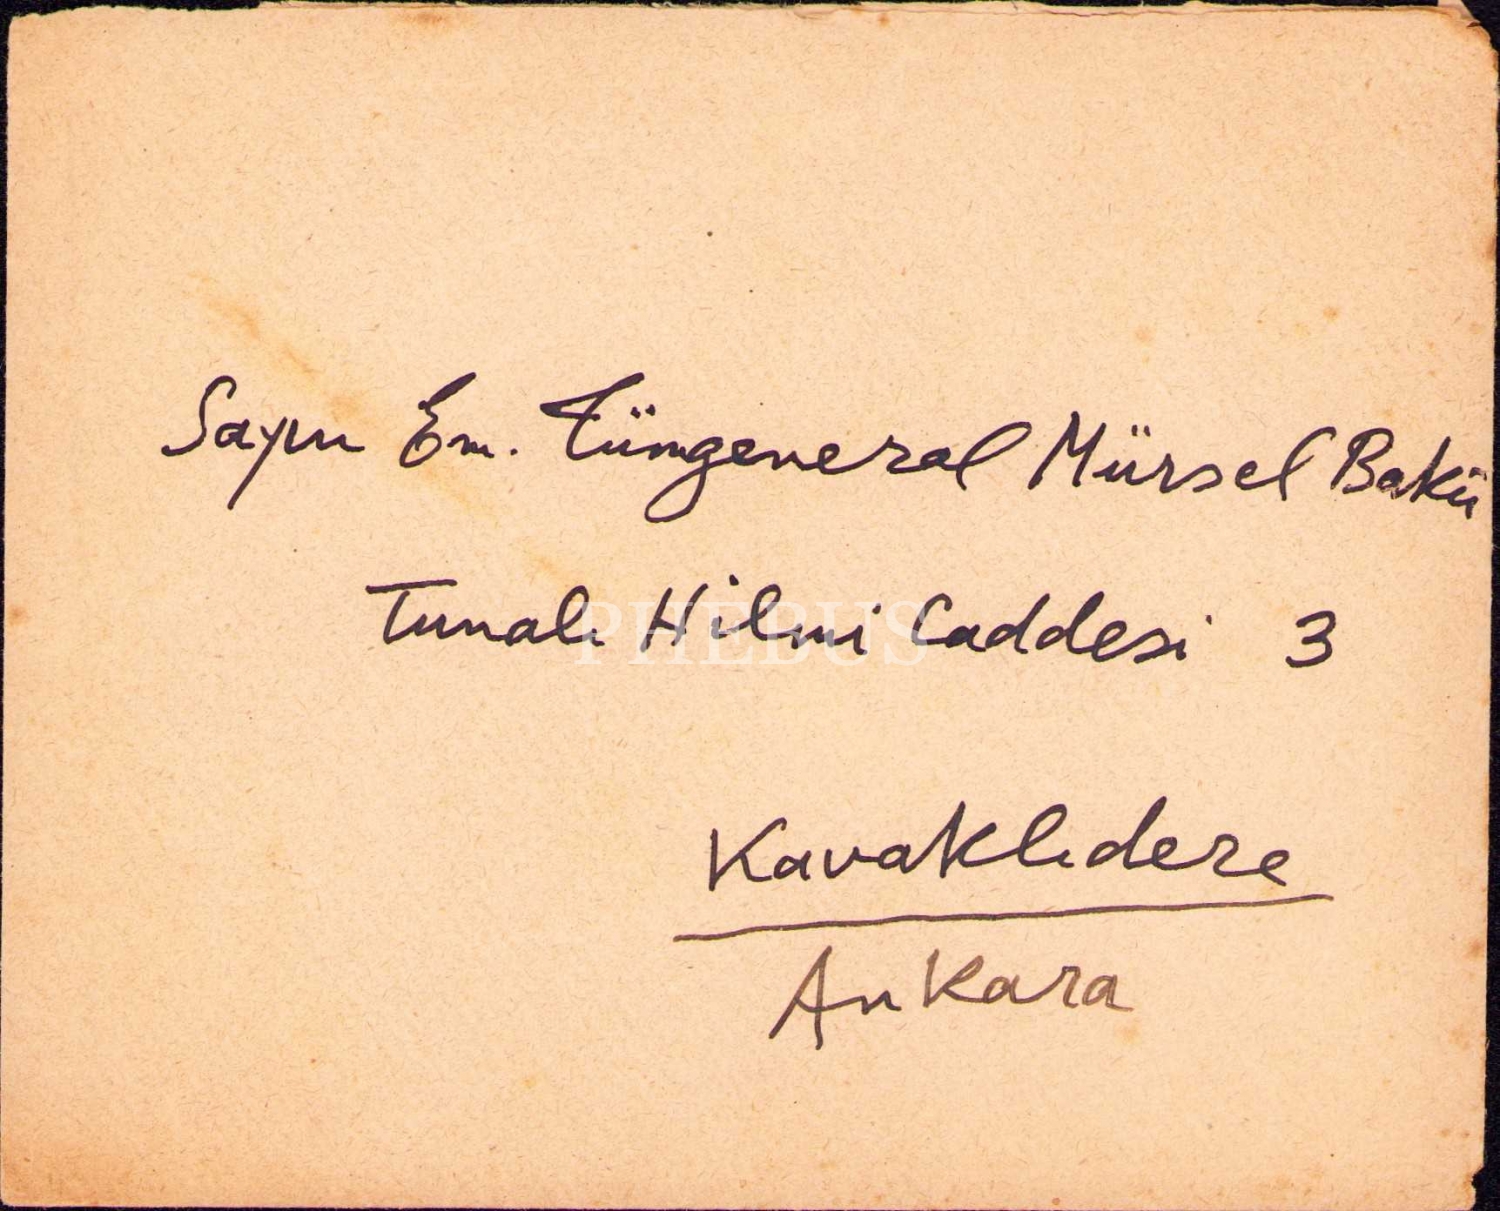 Sayın Em. Tümgeneral Mürsel Bakü
Tunalı Hilmi Caddesi 3
PHEBUS
Kavaklıdere
Ankara